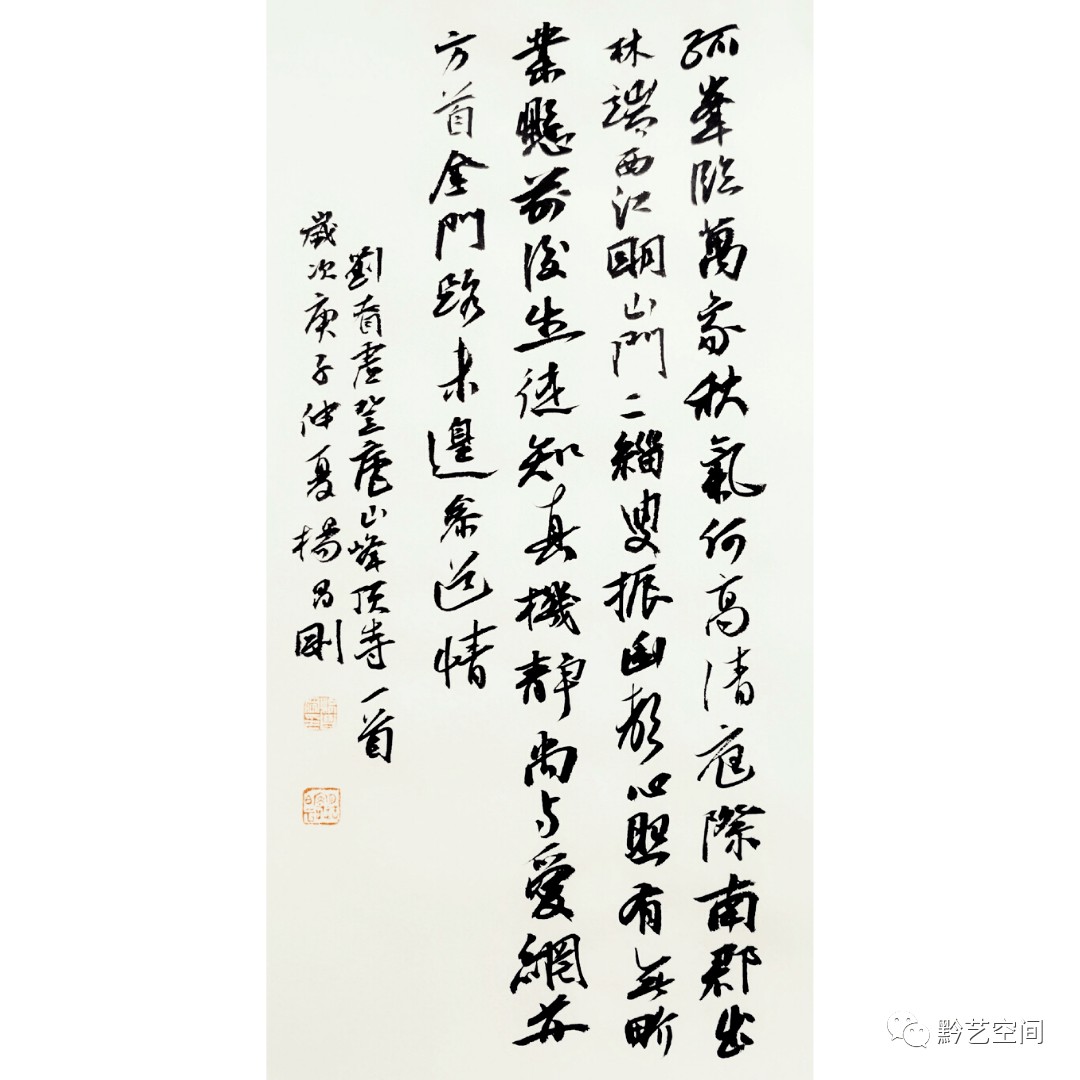 孤峯臨萬象秋氣何高清庭際南郡出
林端西江明山門二緇叟振幽聲心照有無界
業懸前後生徒知真機靜尚与愛網并
方首金門路未遑參道情
劉眘虛登廬山峰頂寺一首
歲次庚子仲夏楊昌剛
黔艺空间